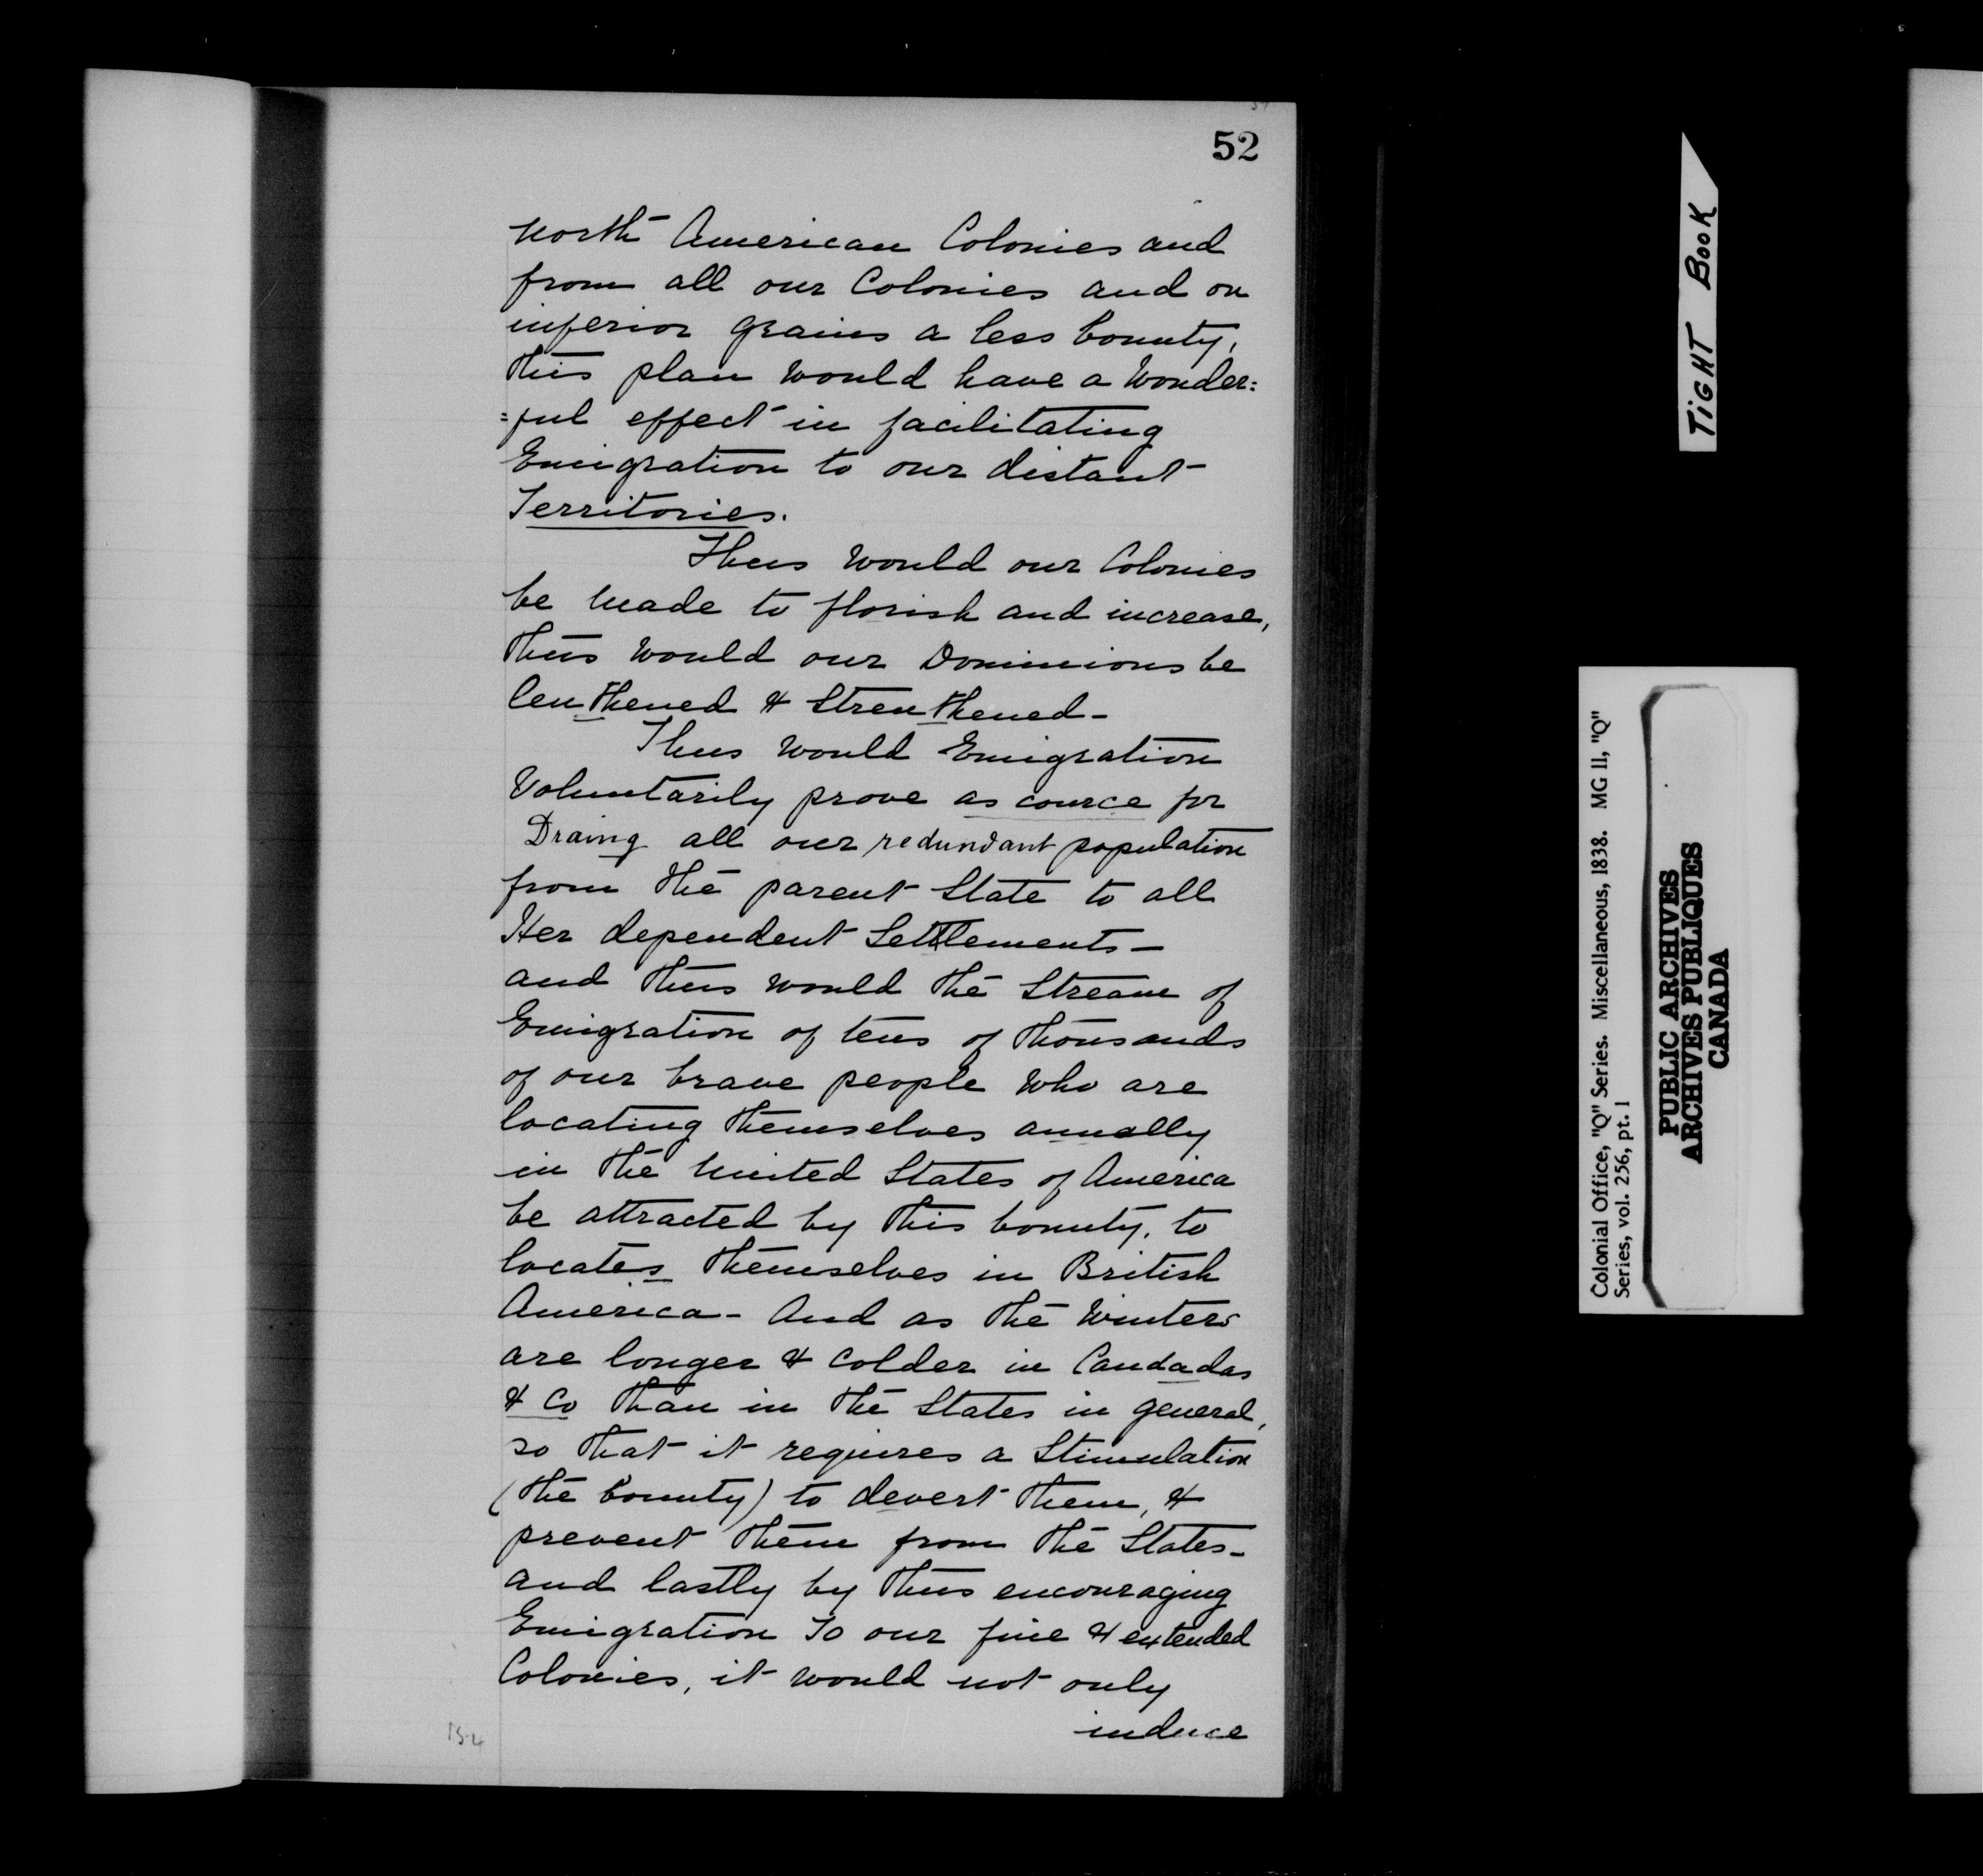 52
North American Colonies and
from all our Colonies and on
inferior grains a less bounty,
this plan would have a Wonder=
=ful effect in facilitating
Emigration to our distant
Territories.
Thus would our Colonies
be made to florish and increase,
thus would our Dominions be
lenthened & Strenthened -
Thus would Emigration
Voluntarily prove as cource for
Draing all our redundant population
from the parent State to all
Her dependent Settlements -
and thus would the Stream of
Emigration of tens of thousands
of our brave people who are
locating themselves anually
in the United States of America
be attracted by this bounty, to
locates themselves in British
America - And as the Winters
are longer & Colder in Candadas
& Co than in the States in general,
so that it requires a Stimulation
(the bounty) to devert them, &
prevent them from the States -
and lastly by thus encouraging
Emigration To our fine & extended
Colonies, it would not only
induce
15-4
TIGHT BOOK
Colonial Office, "Q" Series. Miscellaneous, 1838. MG 11, "Q"
Series, vol. 256, pt. 1
PUBLIC ARCHIVES
ARCHIVES PUBLIQUES
CANADA